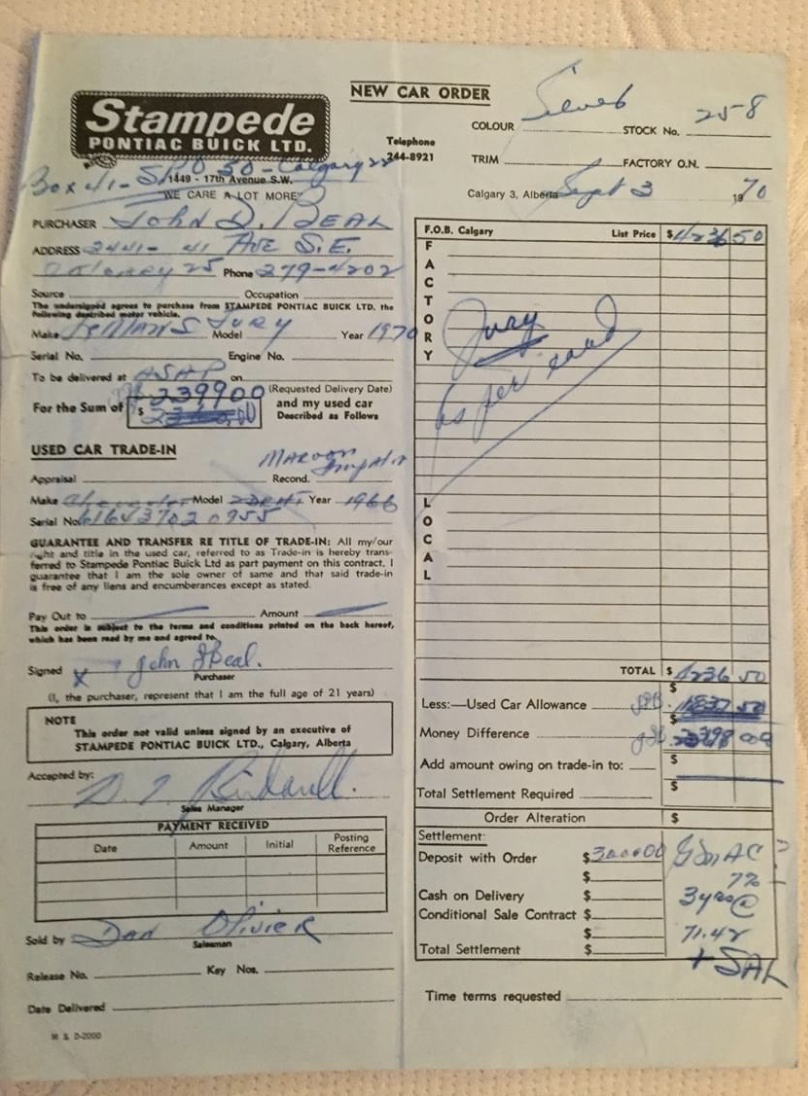 NEW CAR ORDER
Stampede
PONTIAC BUICK LTD.
Telephone
244-8921
1449 - 17th Avenue S.W.
Box 41 - Calgary 22
"WE CARE A LOT MORE"
COLOUR Silver STOCK No. 25-8
TRIM FACTORY O.N.
Calgary 3, Alberta Sept 3 1970
PURCHASER John D. BEAL
ADDRESS 2441 - 41 AVE S.E.
Calgary 25 Phone 279-4202
Source Occupation
The undersigned agrees to purchase from STAMPEDE PONTIAC BUICK LTD. the
following described motor vehicle.
Make LEMANS JURY Model Year 1970
Serial No. Engine No.
To be delivered at ASAP on
(Requested Delivery Date)
For the Sum of $ 2399 00 and my used car
Described as Follows
USED CAR TRADE-IN
MAROON
Impala
Appraisal Recond.
Make Chevrolet Model 2DRHT Year 1966
Serial No.
GUARANTEE AND TRANSFER RE TITLE OF TRADE-IN: All my/our
right and title in the used car, referred to as Trade-in is hereby trans-
ferred to Stampede Pontiac Buick Ltd as part payment on this contract. I
guarantee that I am the sole owner of same and that said trade-in
is free of any liens and encumberances except as stated.
Pay Out to Amount
This order is subject to the terms and conditions printed on the back hereof,
which has been read by me and agreed to.
Signed x John D Beal.
Purchaser
(I, the purchaser, represent that I am the full age of 21 years)
NOTE
This order not valid unless signed by an executive of
STAMPEDE PONTIAC BUICK LTD., Calgary, Alberta
Accepted by:
Sales Manager
PAYMENT RECEIVED
Date Amount Initial Posting
Reference
Sold by Dan Olivier
Salesman
Release No. Key Nos.
Date Delivered
M & D-2000
F.O.B. Calgary List Price $ 4236 50
FACTORY
Jury
as per card
LOCAL
TOTAL $ 4236 50
$
Less:—Used Car Allowance 1837 50
$
Money Difference
Add amount owing on trade-in to: $
Total Settlement Required $
Order Alteration $
Settlement:
Deposit with Order $ 300 00 GMAC
$ 7%
Cash on Delivery $ 3 yrs @
Conditional Sale Contract $
$ 71.42
Total Settlement $ + SAL
Time terms requested